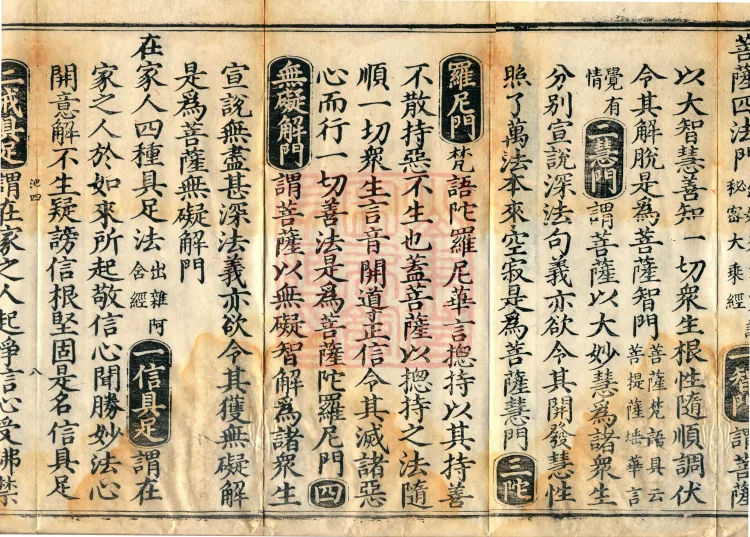 菩薩四法門秘密大乘經一智門謂菩薩
以大智慧善知一切衆生根性隨順調伏
令其解脫是爲菩薩智門菩薩梵語具云菩提薩埵華言
覺有情二慧門謂菩薩以大妙慧爲諸衆生
分別宣說深法句義亦欲令其開發慧性
照了萬法本來空寂是爲菩薩慧門三陀
羅尼門梵語陀羅尼華言摠持以其持善
不散持惡不生也蓋菩薩以摠持之法隨
順一切衆生言音開導正信令其滅諸惡
心而行一切善法是爲菩薩陀羅尼門四
無礙解門謂菩薩以無礙智解爲諸衆生
宣說無盡甚深法義亦欲令其獲無礙解
是爲菩薩無礙解門
在家人四種具足法出雜阿含經一信具足謂在
家之人於如來所起敬信心聞勝妙法心
開意解不生疑謗信根堅固是名信具足
池四 八
二戒具足謂在家之人起淨信心受佛禁